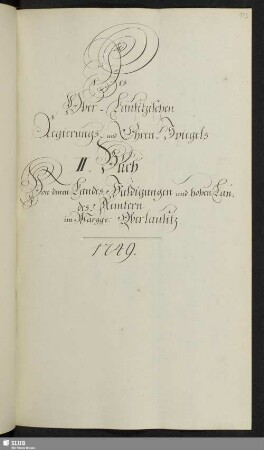 Des
Ober-Lausitzischen
Regierungs- und Ehren-Spiegels
II. Buch
Von denen Landes-Huldigungen und hohen Lan-
des Aemtern
im Marggr. Oberlausitz
1749.
SLUB